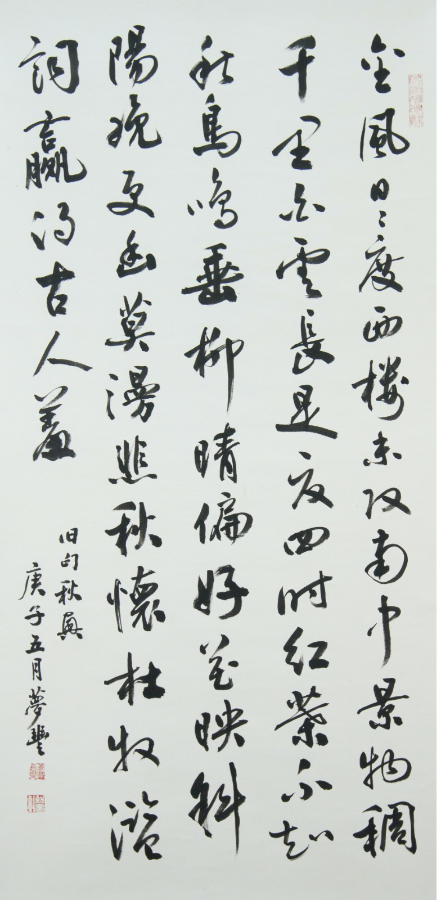 金風日〻度西樓未改南中景物稠
千里白雲長是夏四时紅葉不知
秋鳥鳴垂柳晴偏好花映斜
陽晚更幽莫漫悲秋懷杜牧濫
詞贏得古人羞
旧句秋興
庚子五月夢豐